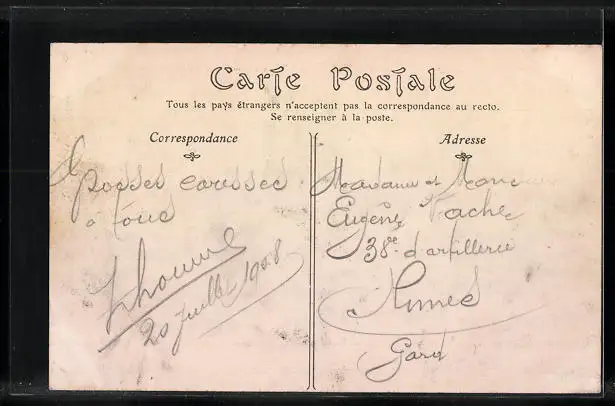 Carte Postale
Tous les pays étrangers n'acceptent pas la correspondance au recto.
Se renseigner à la poste.
Correspondance
Grosses caresses
à tous
20 juillet 1908
Adresse
Madame et
Eugène Vache
38e d'artillerie
Nimes
Gard